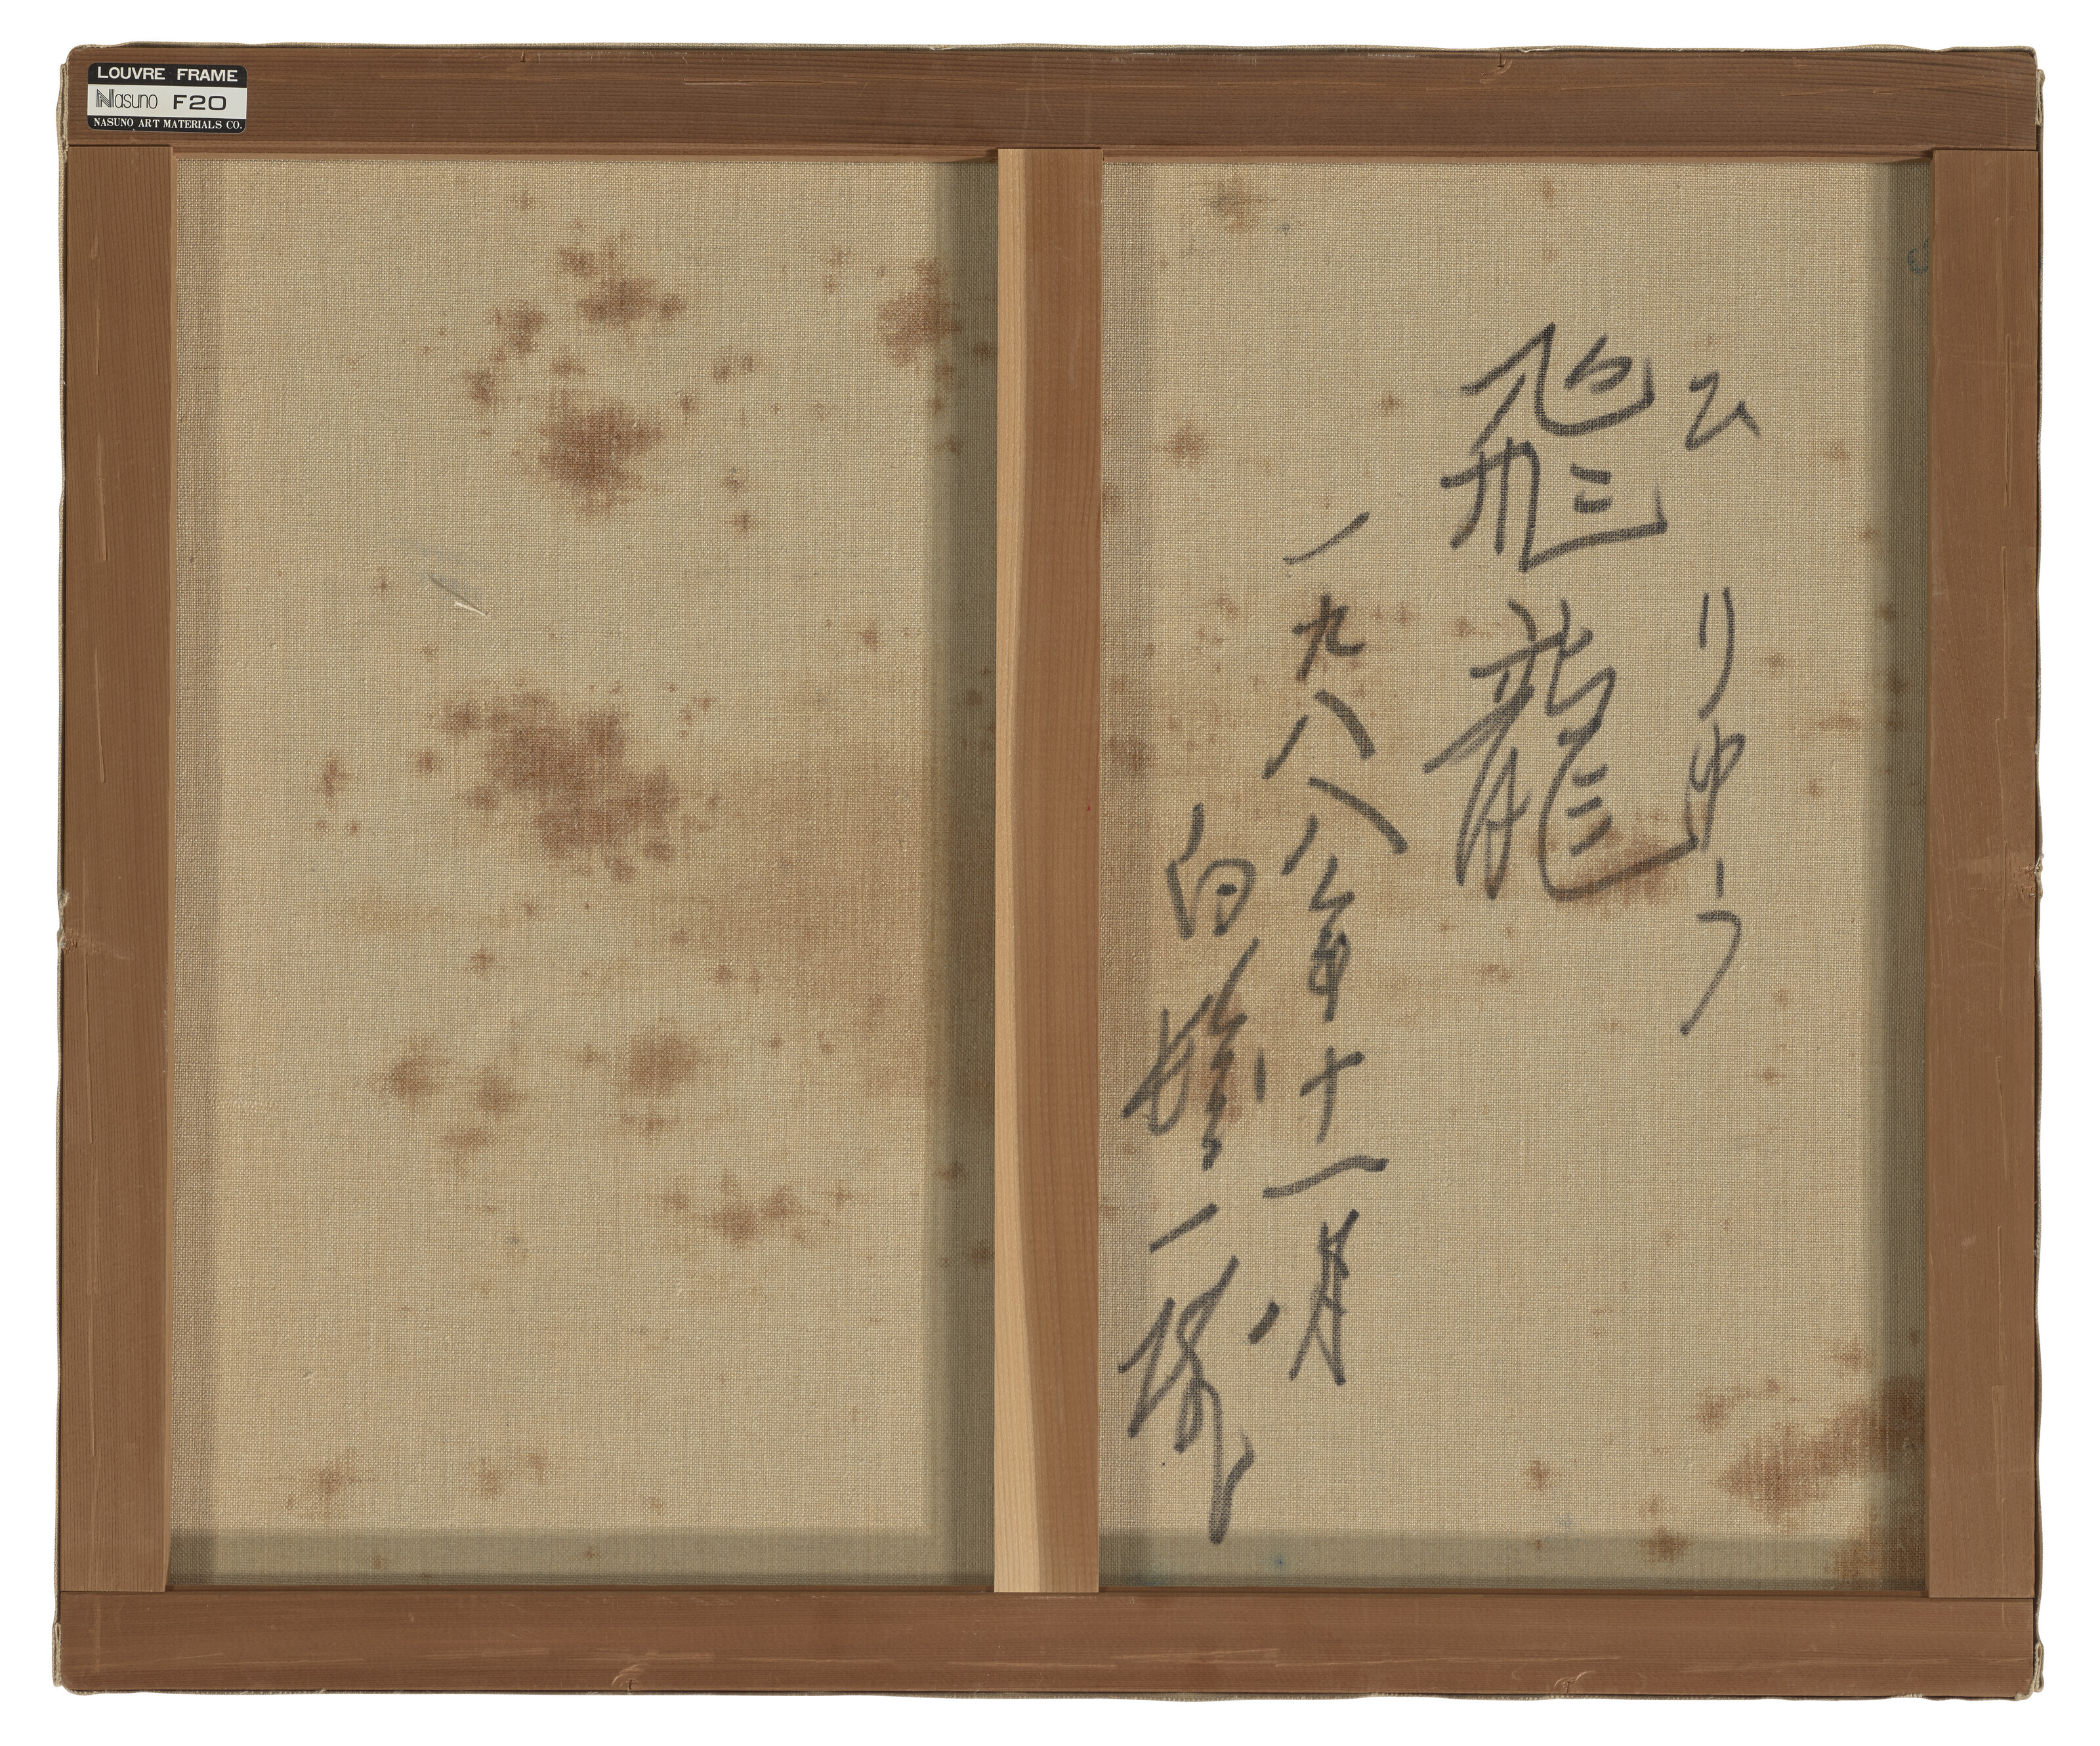 LOUVRE FRAME
Nasuno F20
NASUNO ART MATERIALS CO.
ひ りゆう
飛龍
一九八八年十一月
白髪一雄